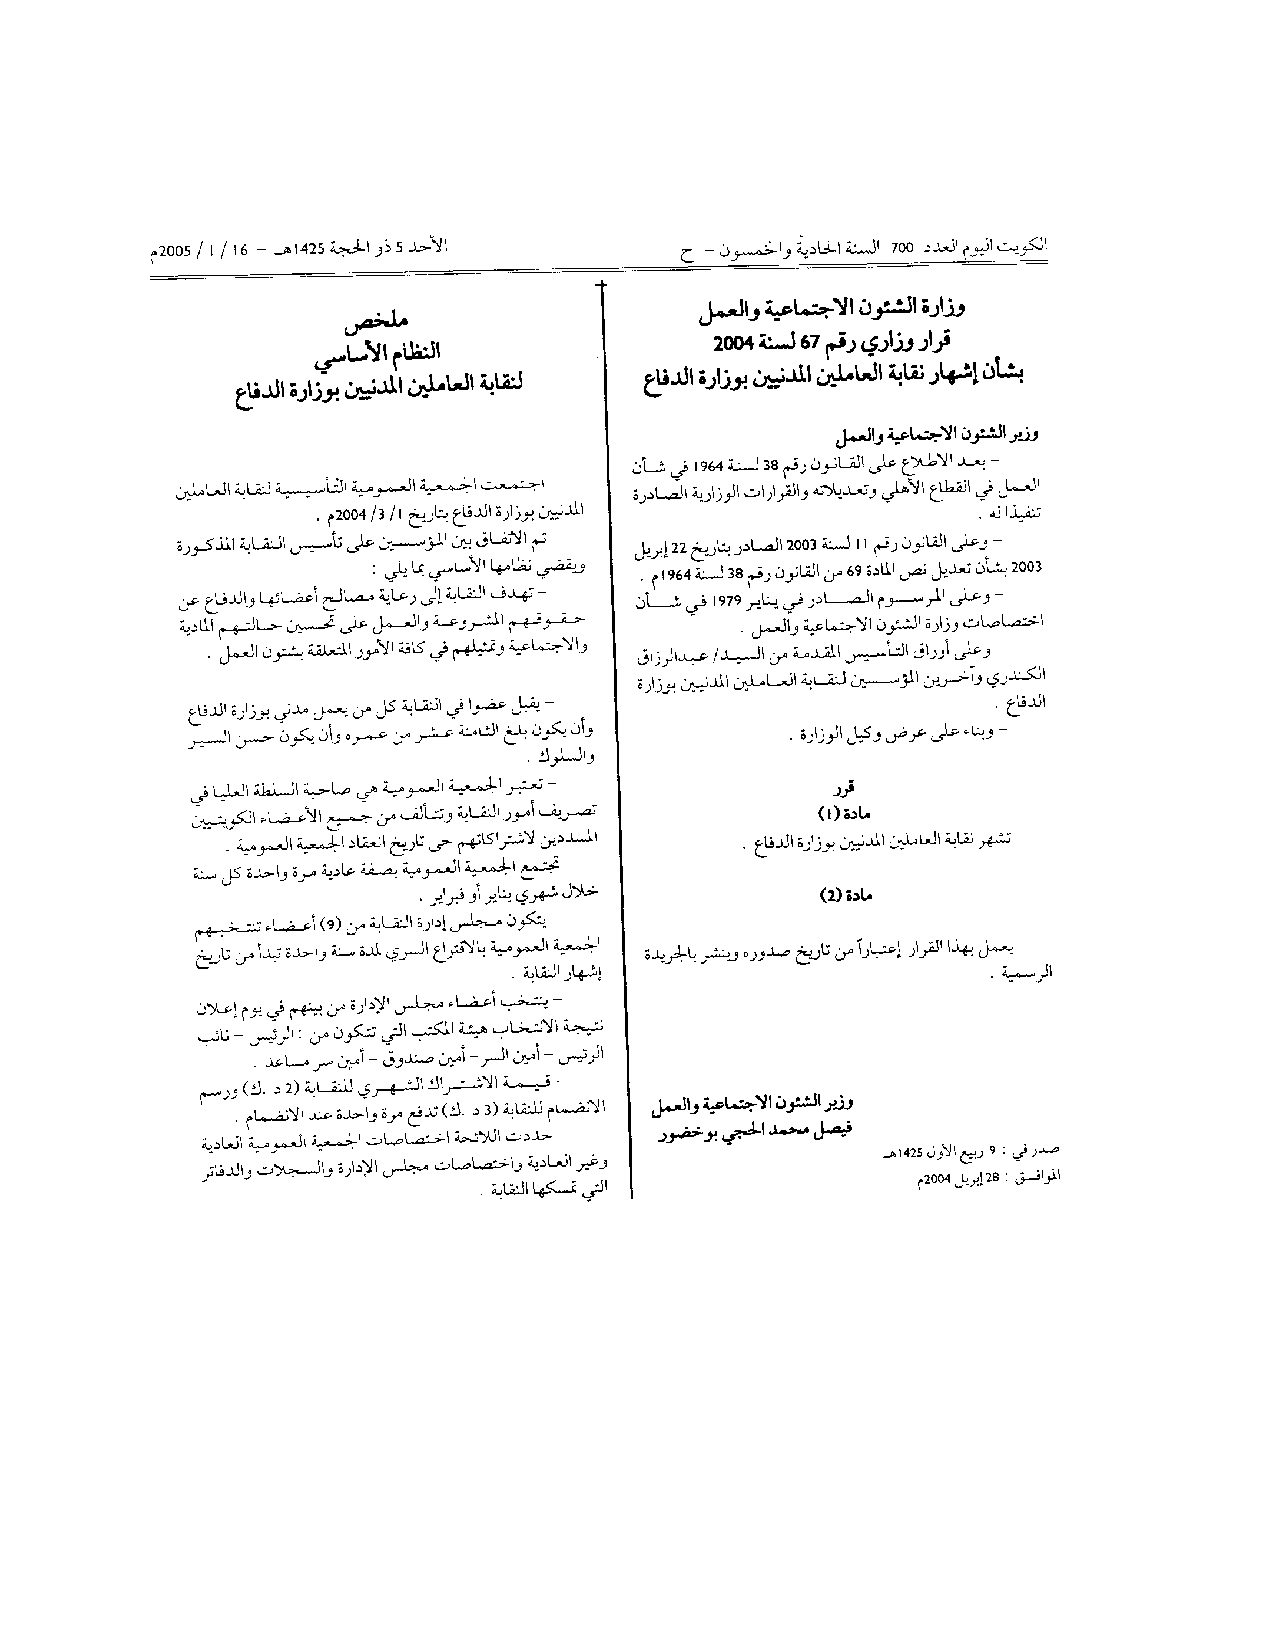 الكويت اليوم العدد 700 السنة الحادية والخمسون – ح
الأحد 5 ذو الحجة 1425هـ – 16 / 1 / 2005م
وزارة الشئون الاجتماعية والعمل
قرار وزاري رقم 67 لسنة 2004
بشأن إشهار نقابة العاملين المدنيين بوزارة الدفاع
وزير الشئون الاجتماعية والعمل
– بعد الاطلاع على القانون رقم 38 لسنة 1964 في شأن
العمل في القطاع الأهلي وتعديلاته والقرارات الوزارية الصادرة
تنفيذا له .
– وعلى القانون رقم 11 لسنة 2003 الصادر بتاريخ 22 إبريل
2003 بشأن تعديل نص المادة 69 من القانون رقم 38 لسنة 1964م .
– وعلى المرسوم الصادر في يناير 1979 في شأن
اختصاصات وزارة الشئون الاجتماعية والعمل .
وعلى أوراق التأسيس المقدمة من السيد/ عبدالرزاق
الكندري وآخرين المؤسسين لنقابة العاملين المدنيين بوزارة
الدفاع .
– وبناء على عرض وكيل الوزارة .
قرر
مادة (1)
تشهر نقابة العاملين المدنيين بوزارة الدفاع .
مادة (2)
يعمل بهذا القرار إعتباراً من تاريخ صدوره وينشر بالجريدة
الرسمية .
وزير الشئون الاجتماعية والعمل
فيصل محمد الحجي بوخضور
صدر في : 9 ربيع الأول 1425هـ
الموافق : 28 إبريل 2004م
ملخص
النظام الأساسي
لنقابة العاملين المدنيين بوزارة الدفاع
اجتمعت الجمعية العمومية التأسيسية لنقابة العاملين
المدنيين بوزارة الدفاع بتاريخ 1 /3 /2004م .
تم الاتفاق بين المؤسسين على تأسيس النقابة المذكورة
ويقضي نظامها الأساسي بما يلي :
– تهدف النقابة إلى رعاية مصالح أعضائها والدفاع عن
حقوقهم المشروعة والعمل على تحسين حالتهم المادية
والاجتماعية وتمثيلهم في كافة الأمور المتعلقة بشئون العمل .
– يقبل عضوا في النقابة كل من يعمل مدني بوزارة الدفاع
وأن يكون بلغ الثامنة عشر من عمره وأن يكون حسن السير
والسلوك .
– تعتبر الجمعية العمومية هي صاحبة السلطة العليا في
تصريف أمور النقابة وتتألف من جميع الأعضاء الكويتيين
المسددين لاشتراكاتهم حى تاريخ انعقاد الجمعية العمومية .
تجتمع الجمعية العمومية بصفة عادية مرة واحدة كل سنة
خلال شهري يناير أو فبراير .
يتكون مجلس إدارة النقابة من (9) أعضاء تنتخبهم
الجمعية العمومية بالاقتراع السري لمدة سنة واحدة تبدأ من تاريخ
إشهار النقابة .
– ينتخب أعضاء مجلس الإدارة من بينهم في يوم إعلان
نتيجة الانتخاب هيئة المكتب التي تتكون من : الرئيس – نائب
الرئيس – أمين السر – أمين صندوق – أمين سر مساعد .
- قيمة الاشتراك الشهري للنقابة (2 د .ك) ورسم
الانضمام للنقابة (3 د .ك) تدفع مرة واحدة عند الانضمام .
حددت اللائحة اختصاصات الجمعية العمومية العادية
وغير العادية واختصاصات مجلس الإدارة والسجلات والدفاتر
التي تمسكها النقابة .